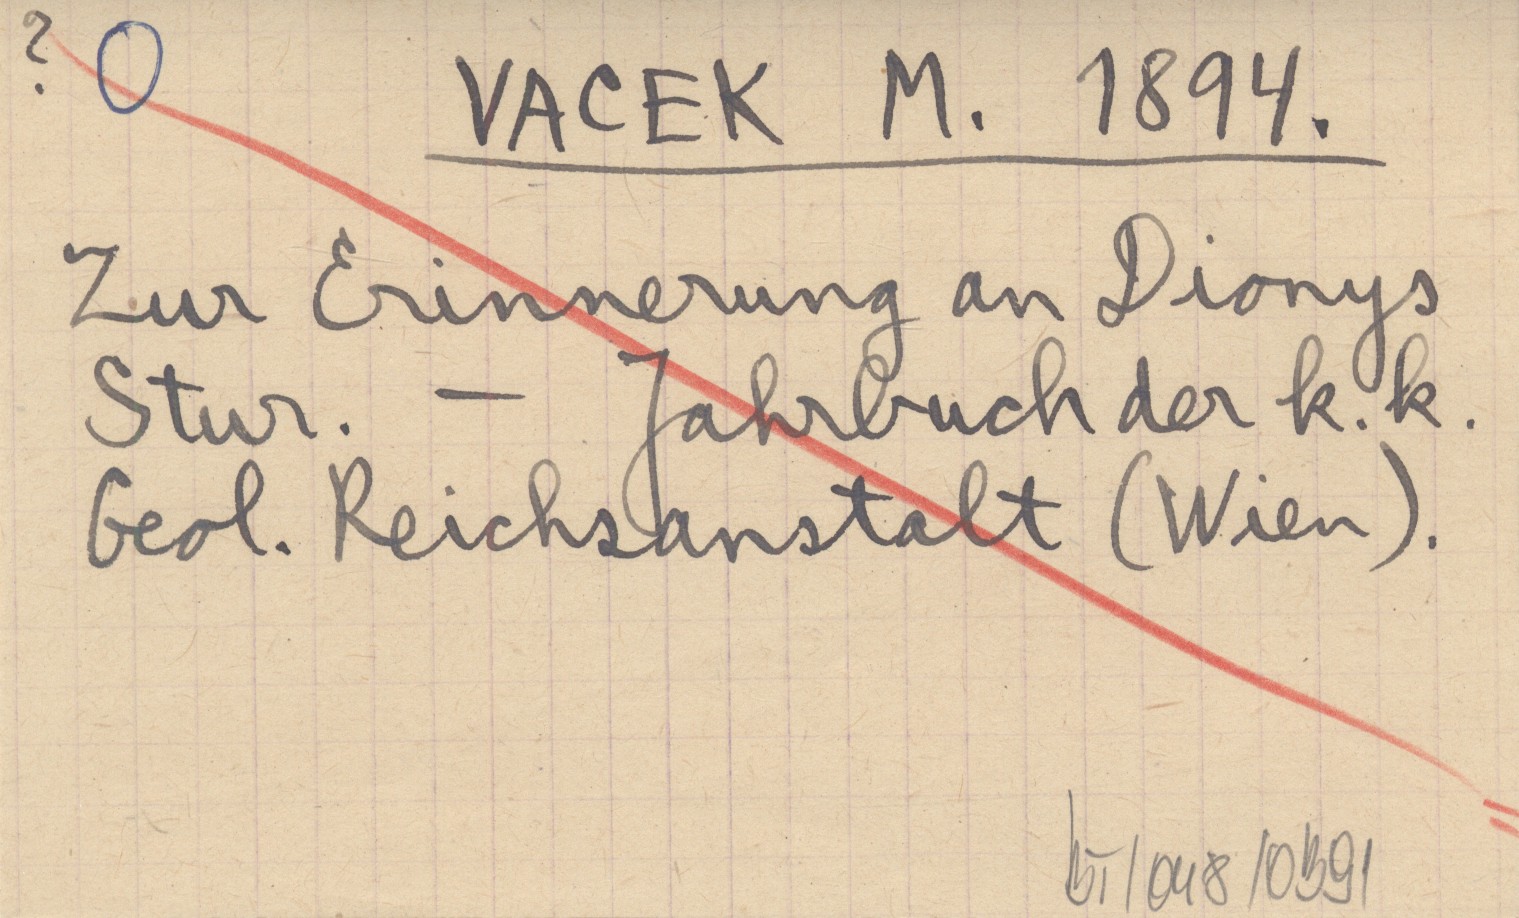 ? O
VACEK M. 1894.
Zur Erinnerung an Dionys
Stur. — Jahrbuch der k. k.
Geol. Reichsanstalt (Wien).